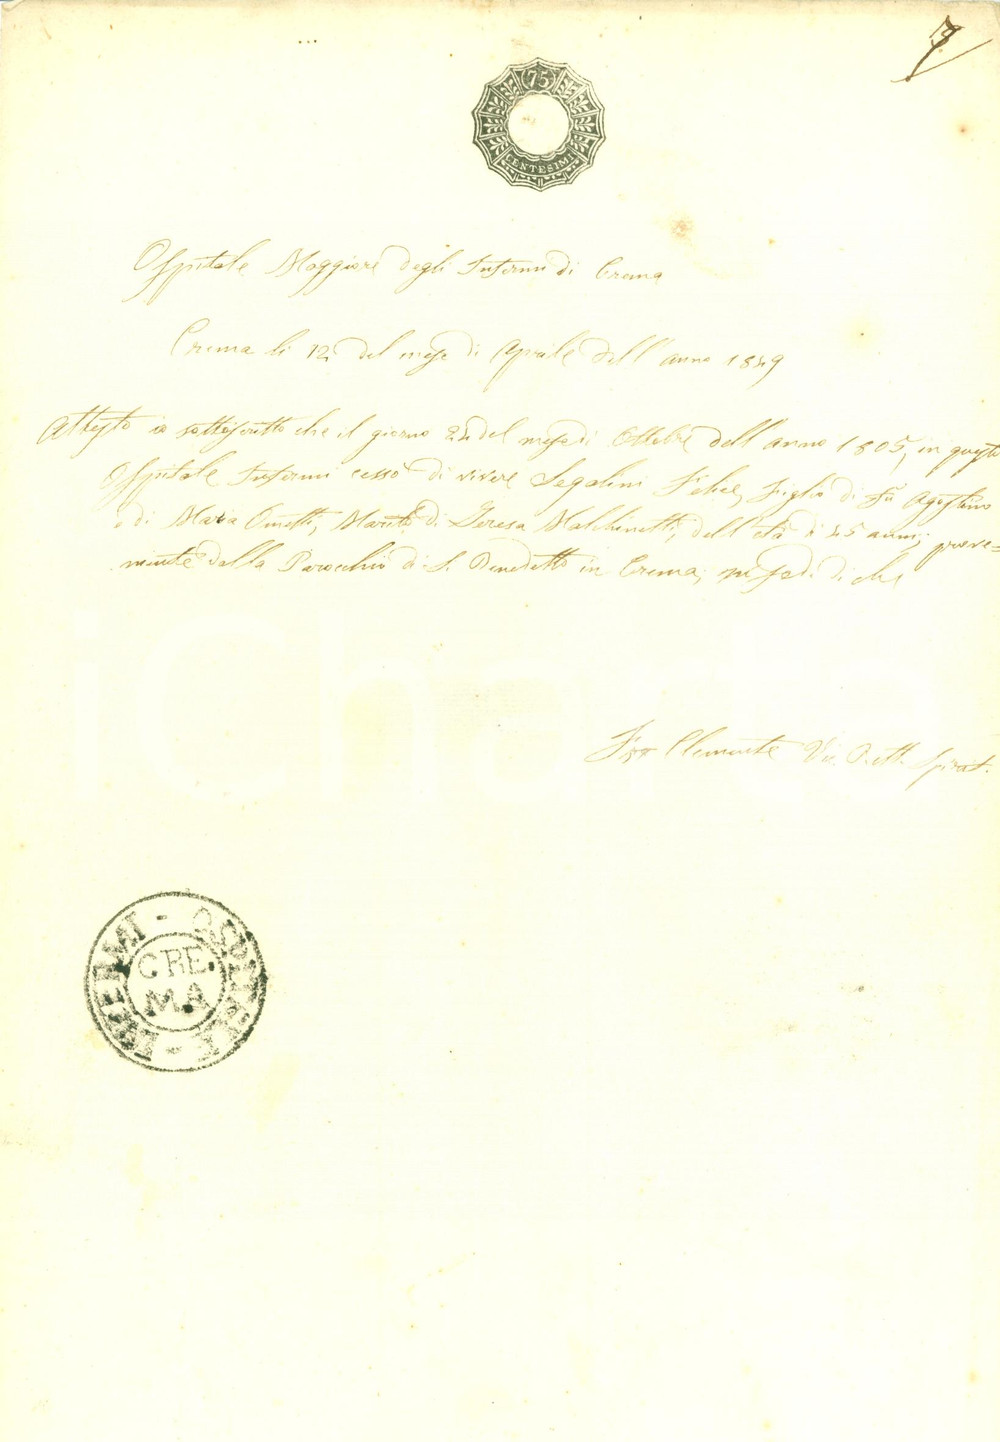 7
75
CENTESIMI
Ospitale Maggiore degli Infermi di Crema
Crema li 12 del mese di Aprile dell'anno 1849
Attesto io sottoscritto che il giorno 24 del mese di Ottobre dell'anno 1805, in questo
Ospitale Infermi cessò di vivere Segalini Felice, figlio di fù Agostino
e di Maria, Marito di Teresa, dell'età di 45 anni; prove=
niente dalla Parocchia di S. Benedetto in Crema; in fede di che
Fra Clemente Vic. Rett. Spirit.
OSPITALE - INFERMI -
CRE
MA
iCharta